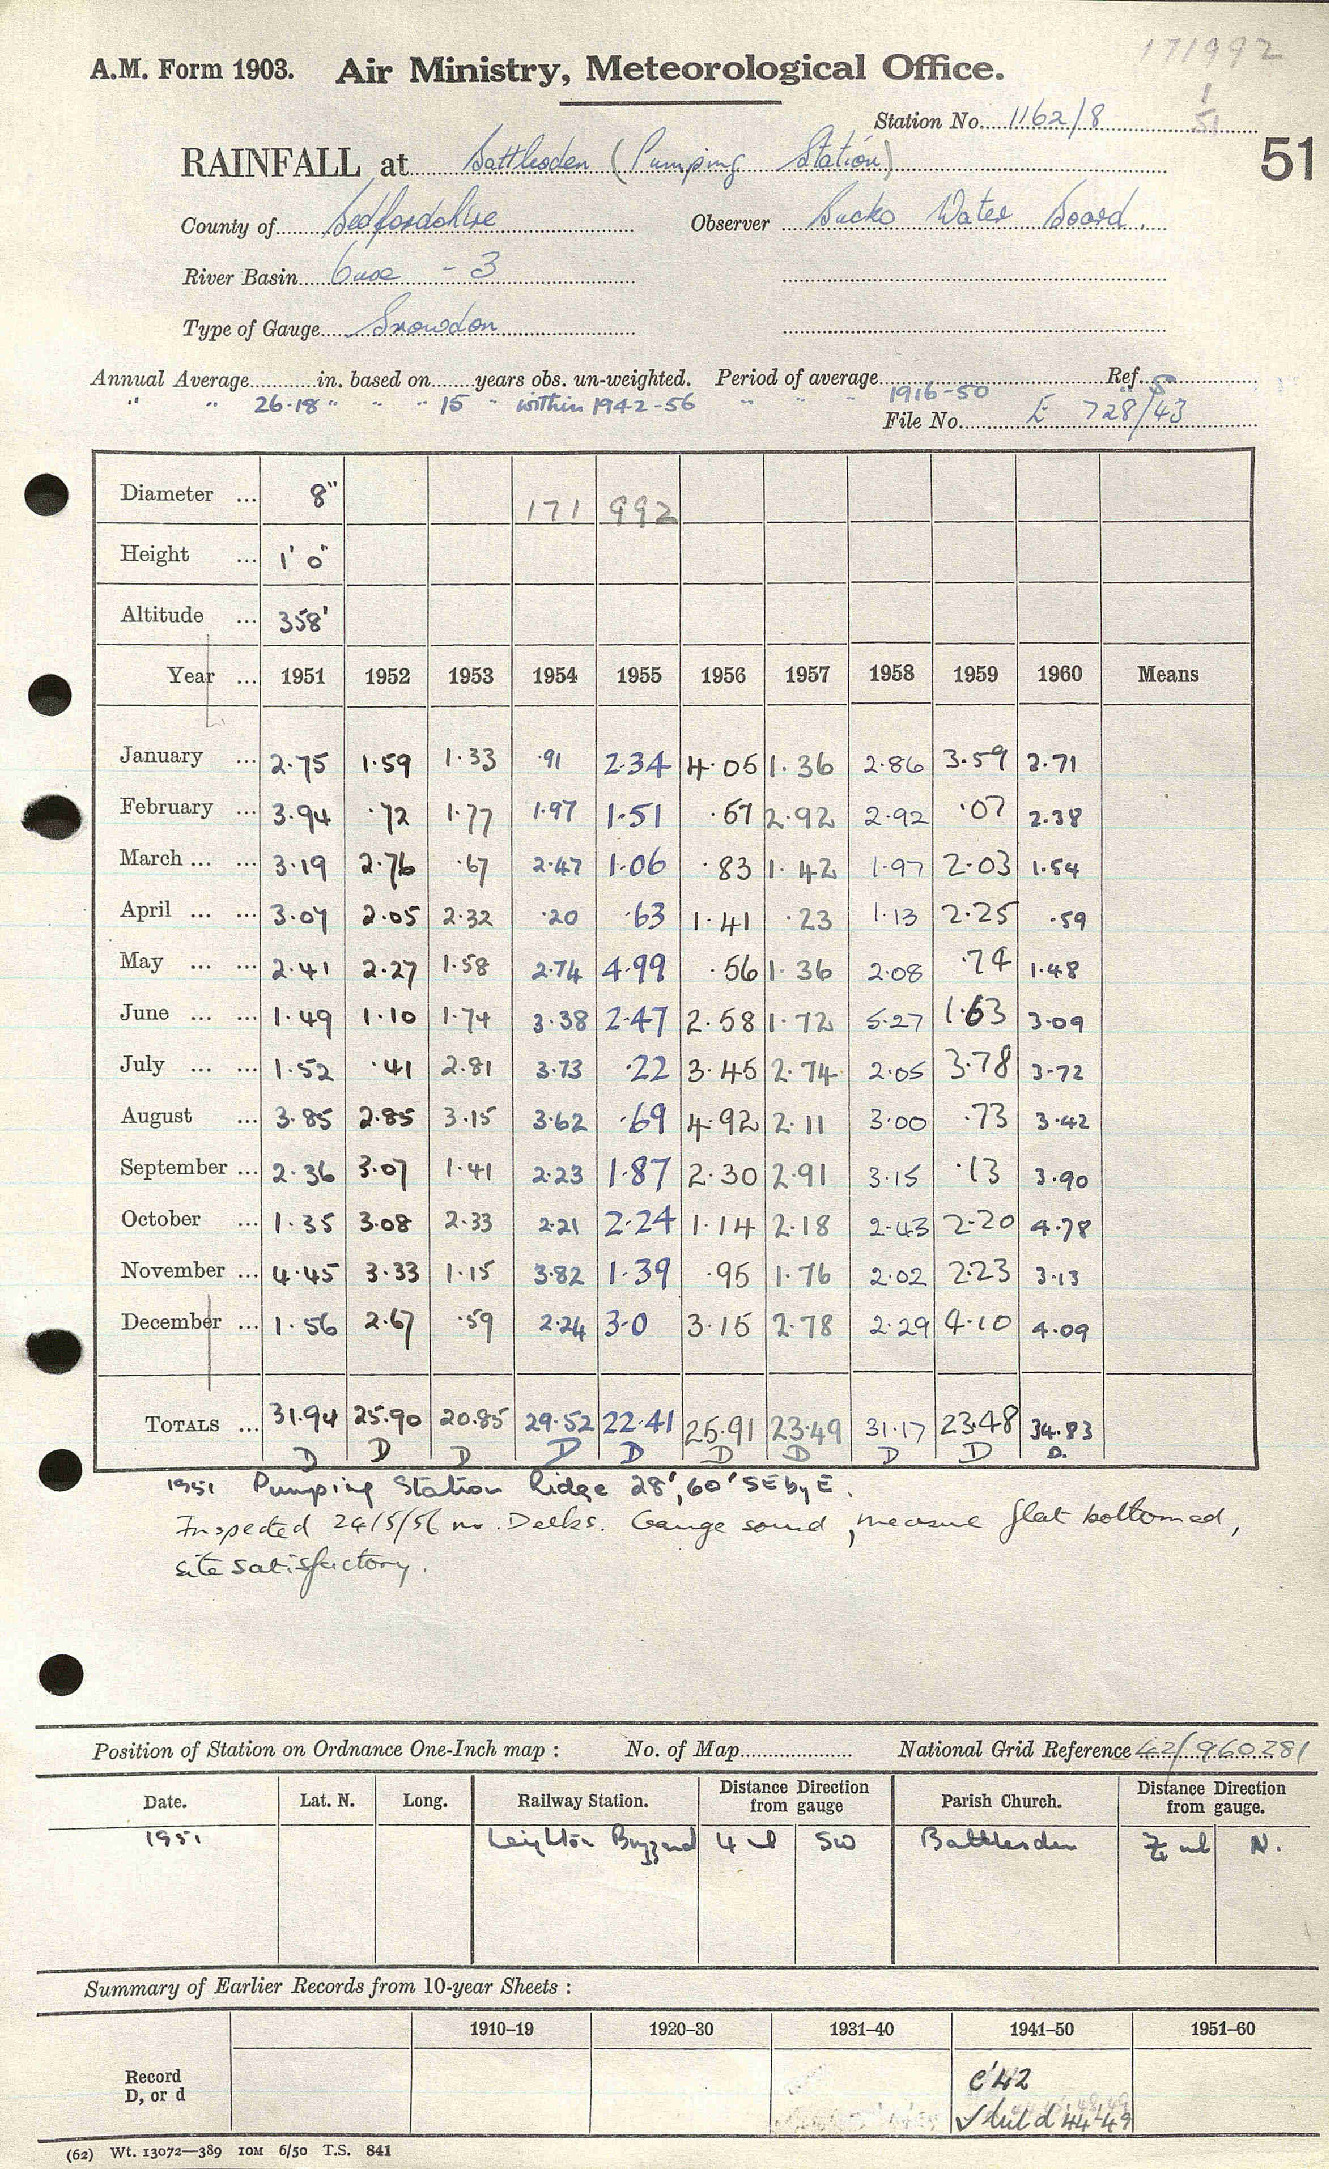 171992
A.M. Form 1903. Air Ministry, Meteorological Office.
1
51
Station No. 1162/8
51
RAINFALL at Battlesden (Pumping Station)
County of Bedfordshire Observer Bucks Water Board.
River Basin Ouse - 3
Type of Gauge Snowdon
Annual Average in. based on years obs. un-weighted. Period of average 1916-50 Ref. 5
" " 26.18 " " " 15 " within 1942-56 " " "
File No. E 728/43
Diameter ... 8" 171 992
Height ... 1' 0"
Altitude ... 358'
Year ... 1951 1952 1953 1954 1955 1956 1957 1958 1959 1960 Means
January ... 2.75 1.59 1.33 .91 2.34 4.05 1.36 2.86 3.59 2.71
February ... 3.94 .72 1.77 1.97 1.51 .67 2.92 2.92 .07 2.38
March ... ... 3.19 2.76 .67 2.47 1.06 .83 1.42 1.97 2.03 1.54
April ... ... 3.07 2.05 2.32 .20 .63 1.41 .23 1.13 2.25 .59
May ... ... 2.41 2.27 1.58 2.74 4.99 .56 1.36 2.08 .74 1.48
June ... ... 1.49 1.10 1.74 3.38 2.47 2.58 1.72 5.27 1.63 3.09
July ... ... 1.52 .41 2.81 3.73 .22 3.45 2.74 2.05 3.78 3.72
August ... 3.85 2.85 3.15 3.62 .69 4.92 2.11 3.00 .73 3.42
September ... 2.36 3.07 1.41 2.23 1.87 2.30 2.91 3.15 .13 3.90
October ... 1.35 3.08 2.33 2.21 2.24 1.14 2.18 2.43 2.20 4.78
November ... 4.45 3.33 1.15 3.82 1.39 .95 1.76 2.02 2.23 3.13
December ... 1.56 2.67 .59 2.24 3.0 3.15 2.78 2.29 4.10 4.09
TOTALS ... 31.94 25.90 20.85 29.52 22.41 25.91 23.49 31.17 23.48 34.83
D D D D D D D D D D.
1951 Pumping Station Ridge 28', 60' SE by E.
Inspected 24/5/56 Mr. Delks. Gauge sound, measure flat bottomed,
site satisfactory.
Position of Station on Ordnance One-Inch map : No. of Map National Grid Reference 42/960281
Date. Lat. N. Long. Railway Station. Distance Direction from gauge Parish Church. Distance Direction from gauge.
1951 Leighton Buzzard 4 ml SW Battlesden ml N.
Summary of Earlier Records from 10-year Sheets :
1910–19 1920–30 1931–40 1941–50 1951–60
Record
D, or d
c'42
44'49
(62) Wt. 13072—389 10M 6/50 T.S. 841